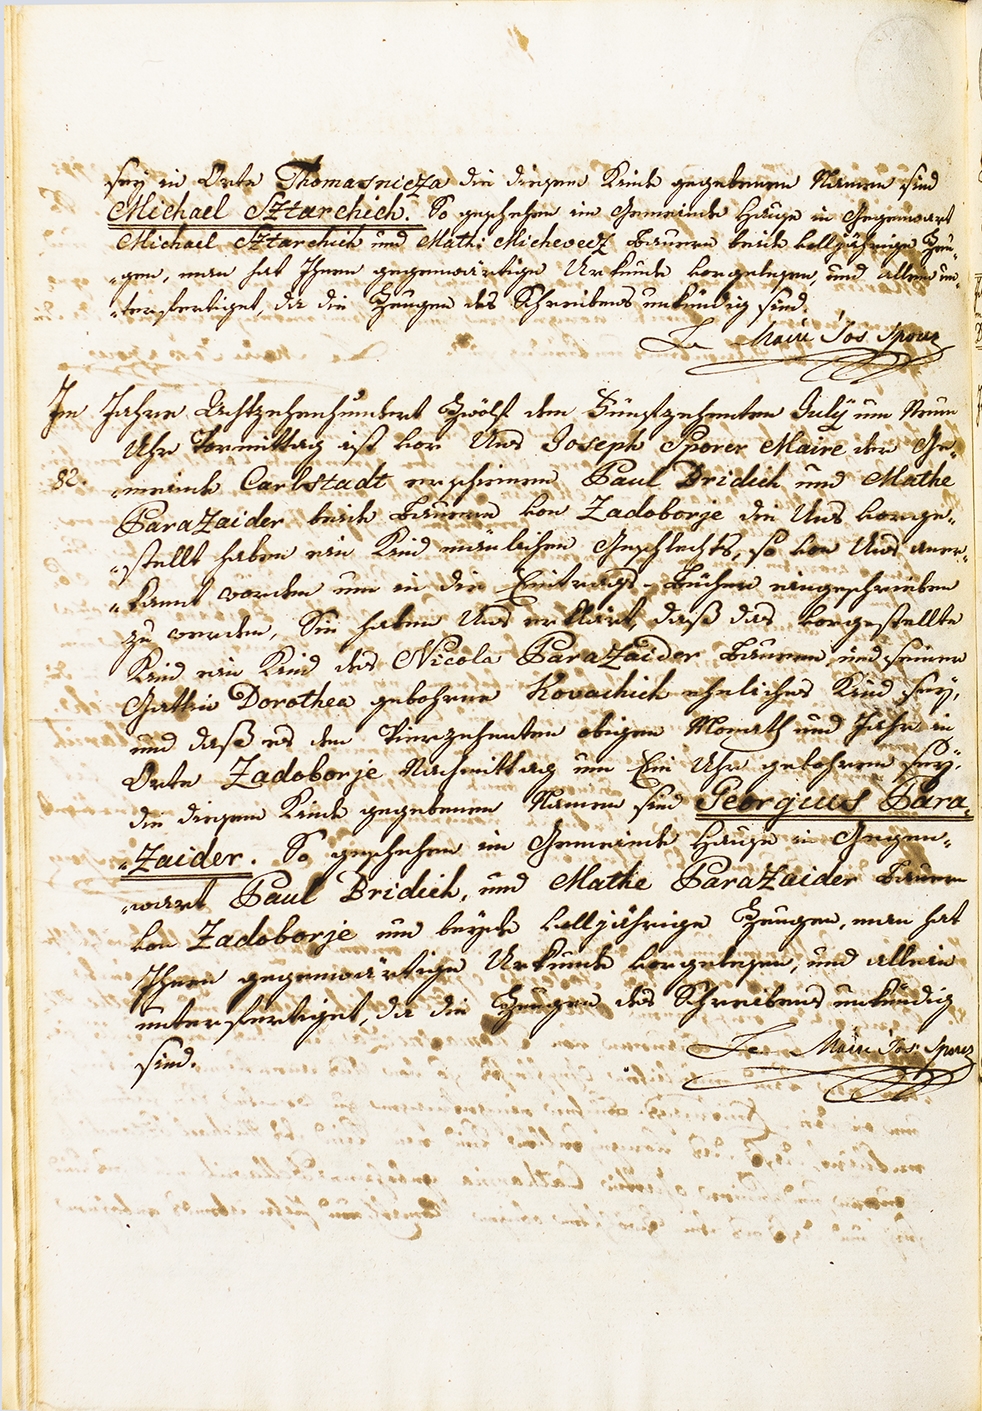 sey in Orte Thomasnicza die diesem Kinde gegebenen Namen sind
Michael Sztarchich. So geschehen im Gemeinde Hause in Gegenwart
Michael Sztarchich und Mathi Michevecz Bauern beide volljährige Zeu-
-gen, man hat Ihnen gegenwärtige Urkunde vorgelesen, und allein un-
-terfertiget, da die Zeugen des Schreibens unkündig sind.
Le Maire Jos. Sporer
Im Jahre Achtzehenhundert Zwölf den Fünfzehenten July um Neun
Uhr Vormittag ist vor Uns Joseph Sporer Maire der Ge-
82. meinde Carlstadt erschienen Paul Bridich und Mathe
ParaZaider beide Bauern von Zadoborje die Uns vorge-
-stellt haben ein Kind mänlichen Geschlechts, so von Uns aner-
-kannt worden um in die Eintrags-Bücher eingeschrieben
zu werden, Sie haben Uns erklärt, daß das vorgestellte
Kind ein Kind des Nicola ParaZaider Bauern und seiner
Gattin Dorothea gebohrne Kovachich eheliches Kind sey,
und daß es den Vierzehenten obigen Monath und Jahr in
Orte Zadoborje Nachmittag um Ein Uhr gebohren sey,
die diesem Kinde gegebenen Namen sind Georgius Para-
-Zaider. So geschehen im Gemeinde Hause in Gegen-
-wart Paul Bridich, und Mathe ParaZaider Bauern
von Zadoborje und beyde volljährige Zeugen, man hat
Ihnen gegenwärtige Urkunde vorgelesen, und allein
unterfertiget, da die Zeugen des Schreibens unkündig
sind.
Le Maire Jos. Sporer